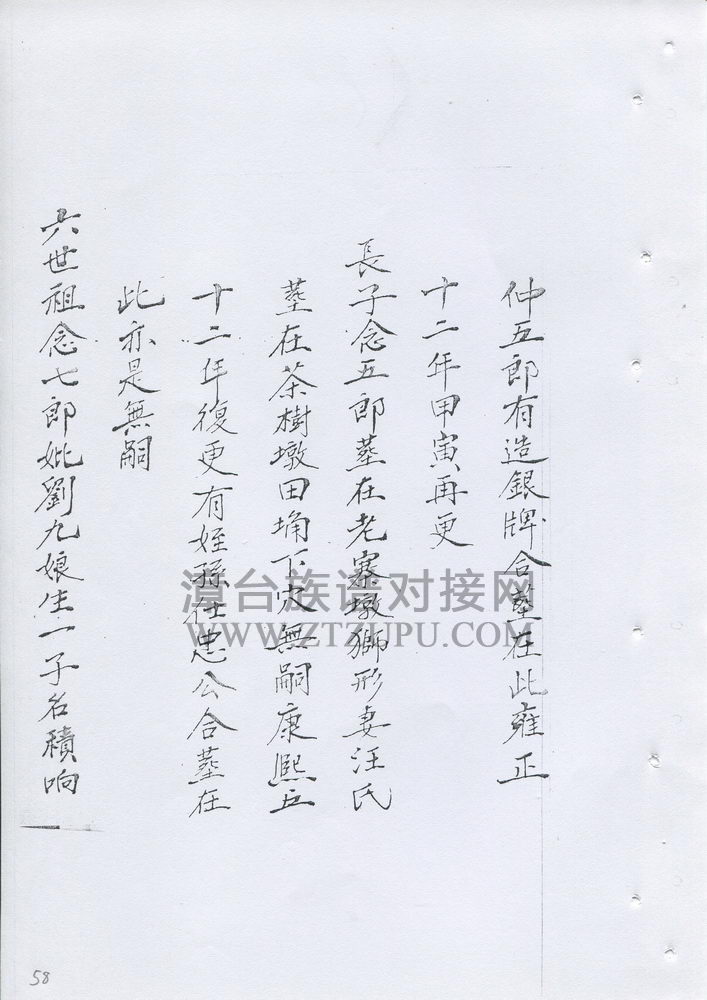 仲五郎有造銀牌合塟在此雍正
十二年甲寅再更
長子念五郎塟在老寨墩獅形妻汪氏
塟在茶樹墩田埇下穴無嗣康熙五
十二年復更有姪孫仕忠公合塟在
此亦是無嗣
六世祖念七郎妣劉九娘生一子名積响
漳台族谱对接网
WWW.ZTZUPU.COM
58